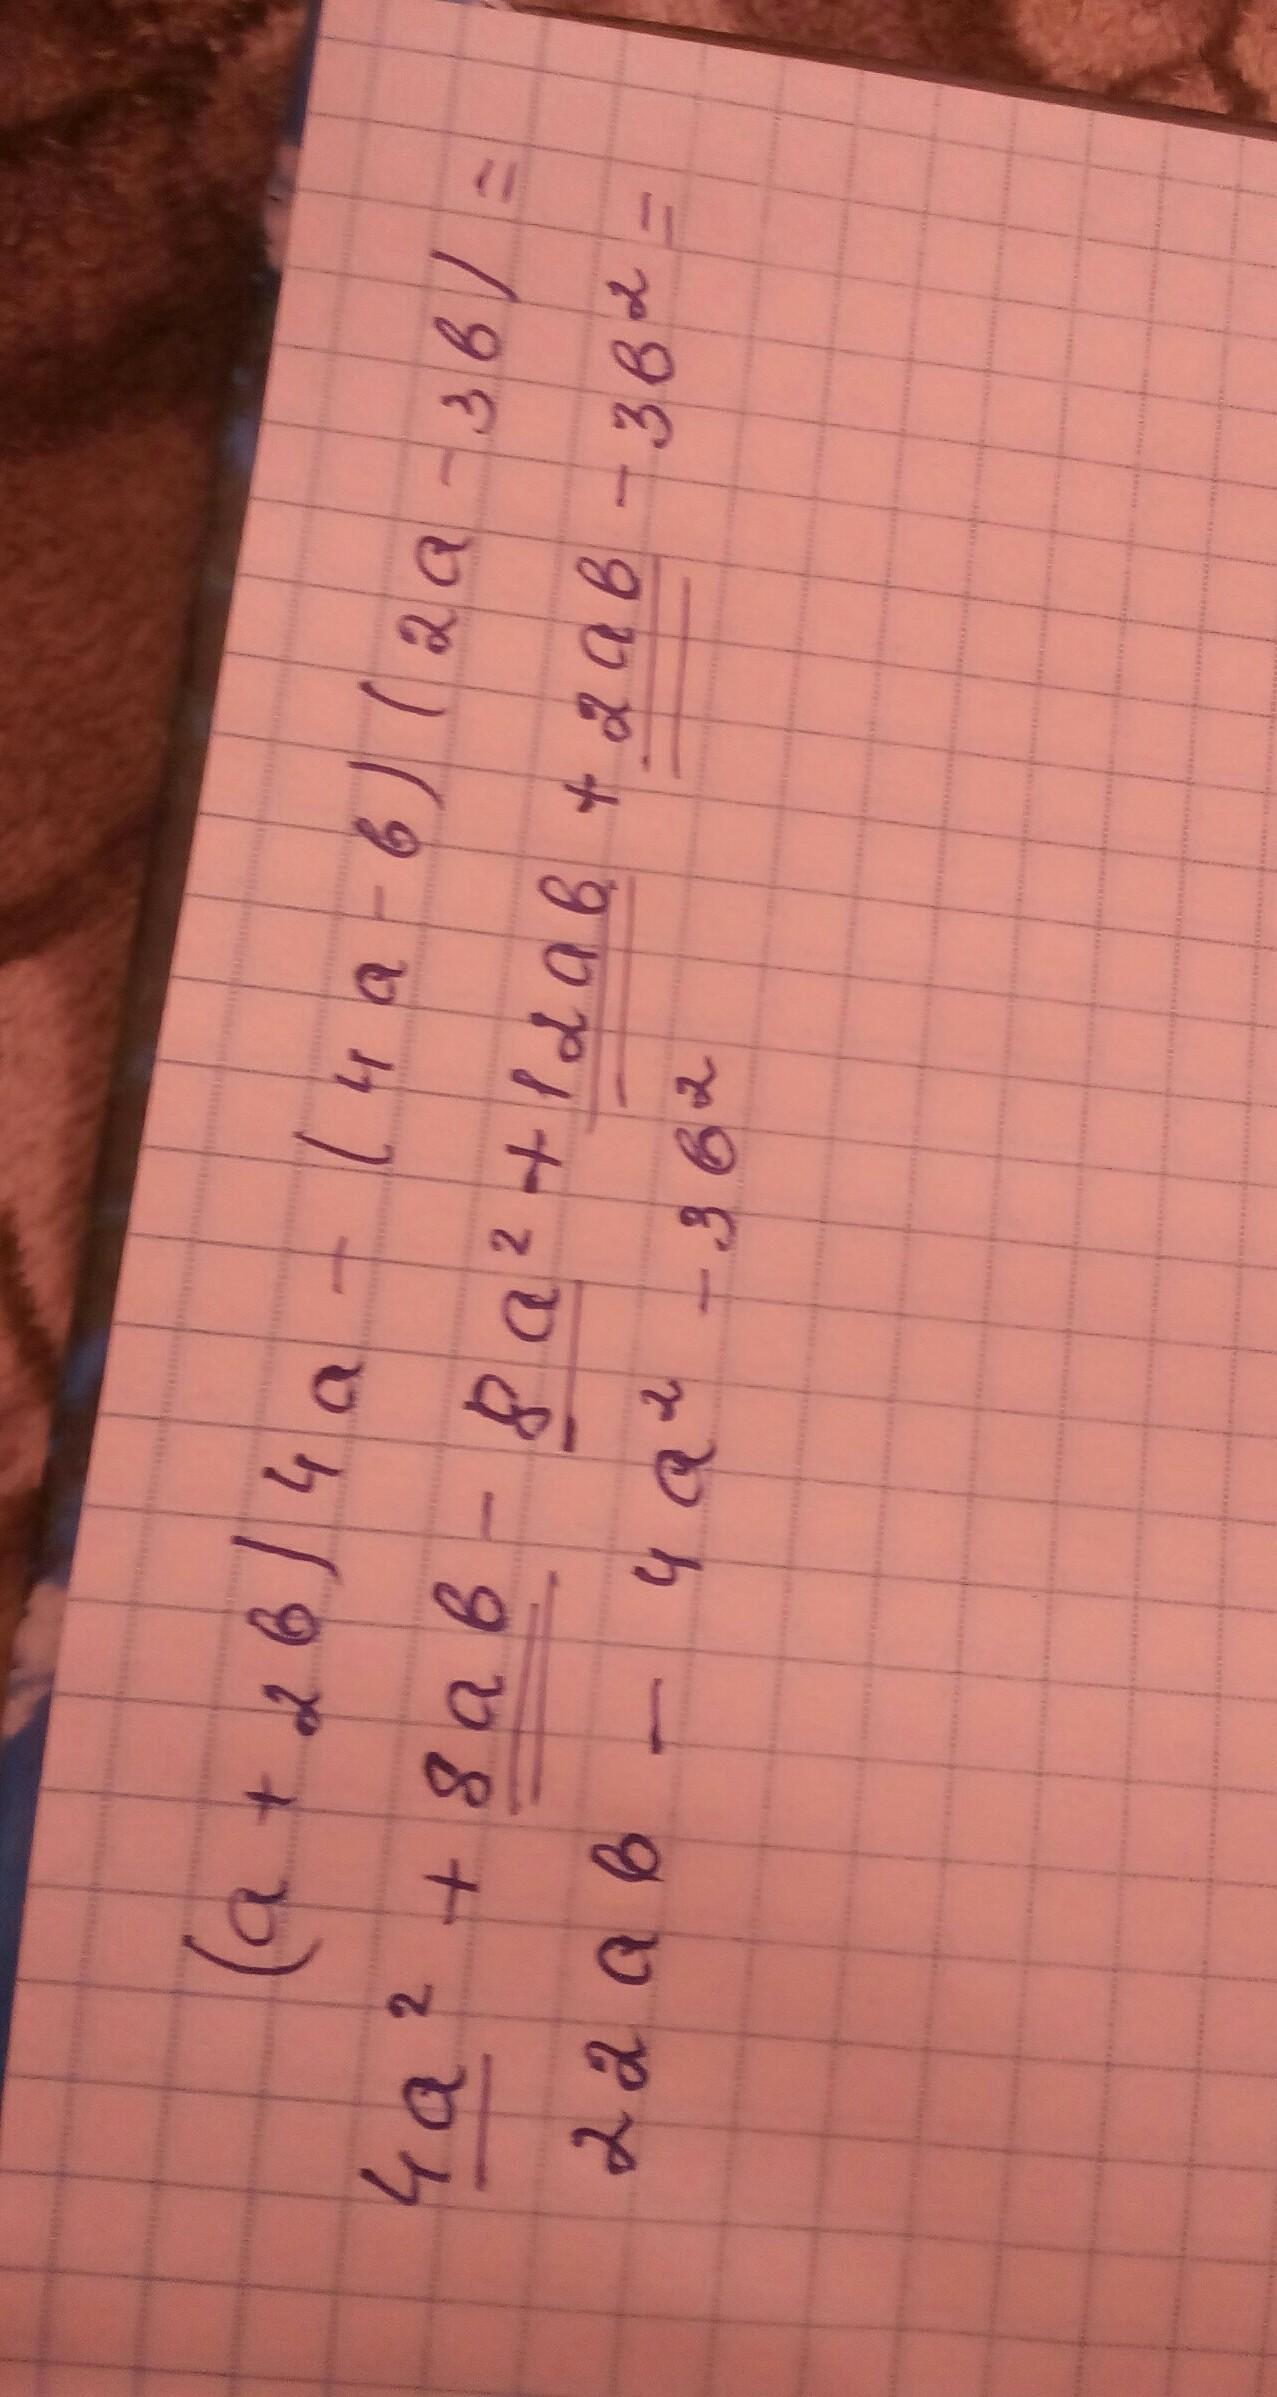 (a + 2b) 4a - (4a - b)(2a - 3b) =
4a² + 8ab - 8a² + 12ab + 2ab - 3b² =
22ab - 4a² - 3b²